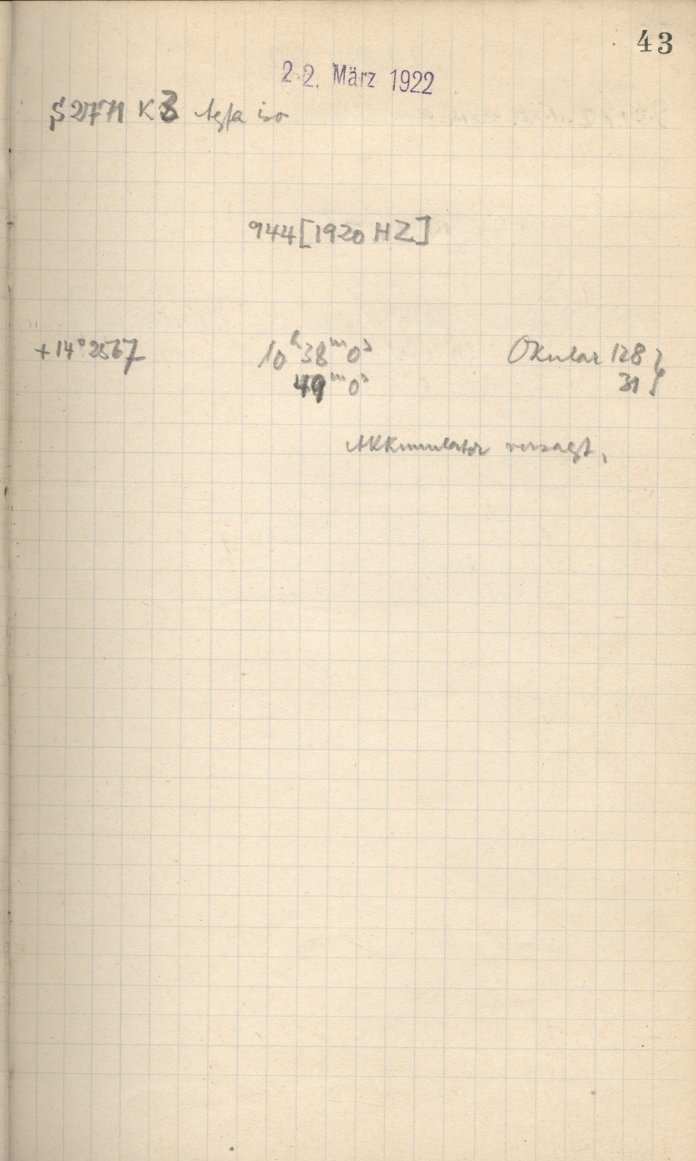 43
22. März 1922
S 2771 K 3 Agfa iso
944 [1920 HZ]
+14° 2567 10ʰ38ᵐ0ˢ Okular 128 }
49ᵐ0ˢ 31 }
Akkumulator versagt.